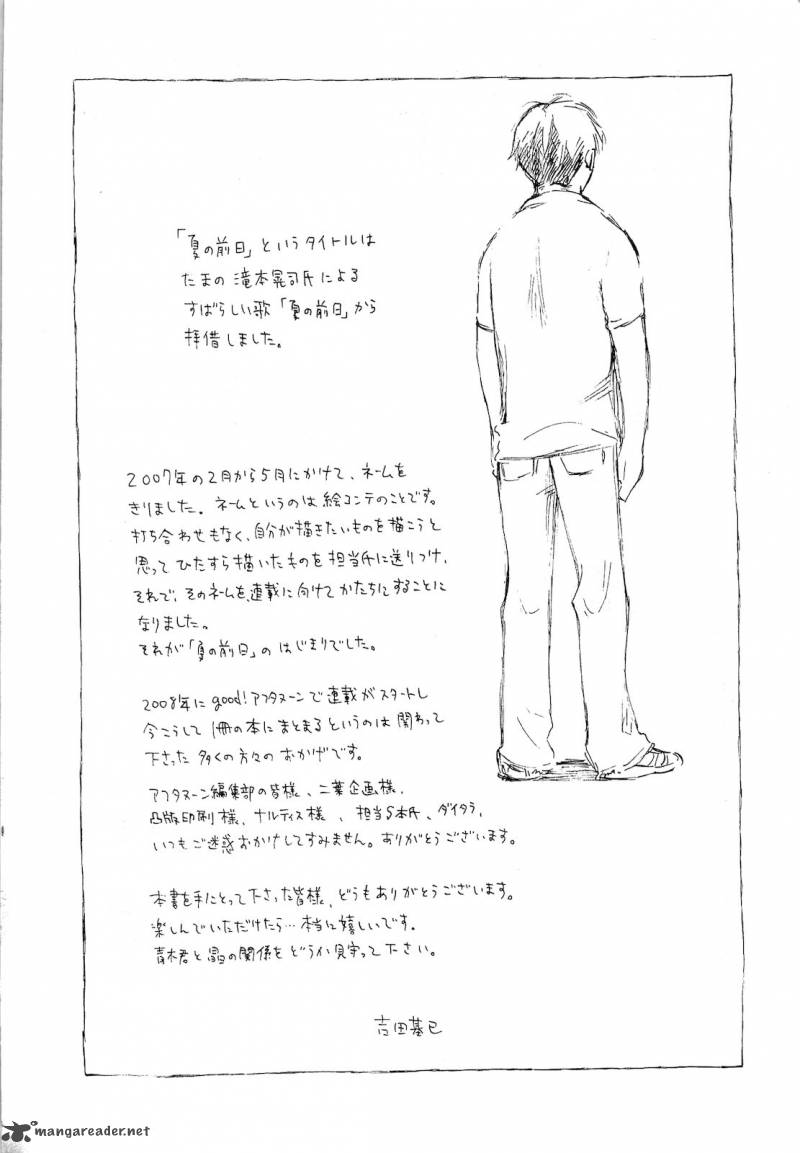 「夏の前日」というタイトルは
たまの滝本晃司氏による
すばらしい歌「夏の前日」から
拝借しました。
2007年の2月から5月にかけて、ネームを
きりました。ネームというのは絵コンテのことです。
打ち合わせもなく、自分が描きたいものを描こうと
思ってひたすら描いたものを担当氏に送りつけ、
それで、そのネームを、連載に向けてかたちにすることに
なりました。
それが「夏の前日」のはじまりでした。
2008年にgood!アフタヌーンで連載がスタートし
今こうして1冊の本にまとまるというのは関わって
下さった多くの方々のおかげです。
アフタヌーン編集部の皆様、二葉企画様、
凸版印刷様、ナルティス様、担当S本氏、ダイタラ、
いつもご迷惑おかけしてすみません。ありがとうございます。
本書を手にとって下さった皆様、どうもありがとうございます。
楽しんでいただけたら…本当に嬉しいです。
青木君と晶の関係をどうか見守って下さい。
吉田基已
mangareader.net